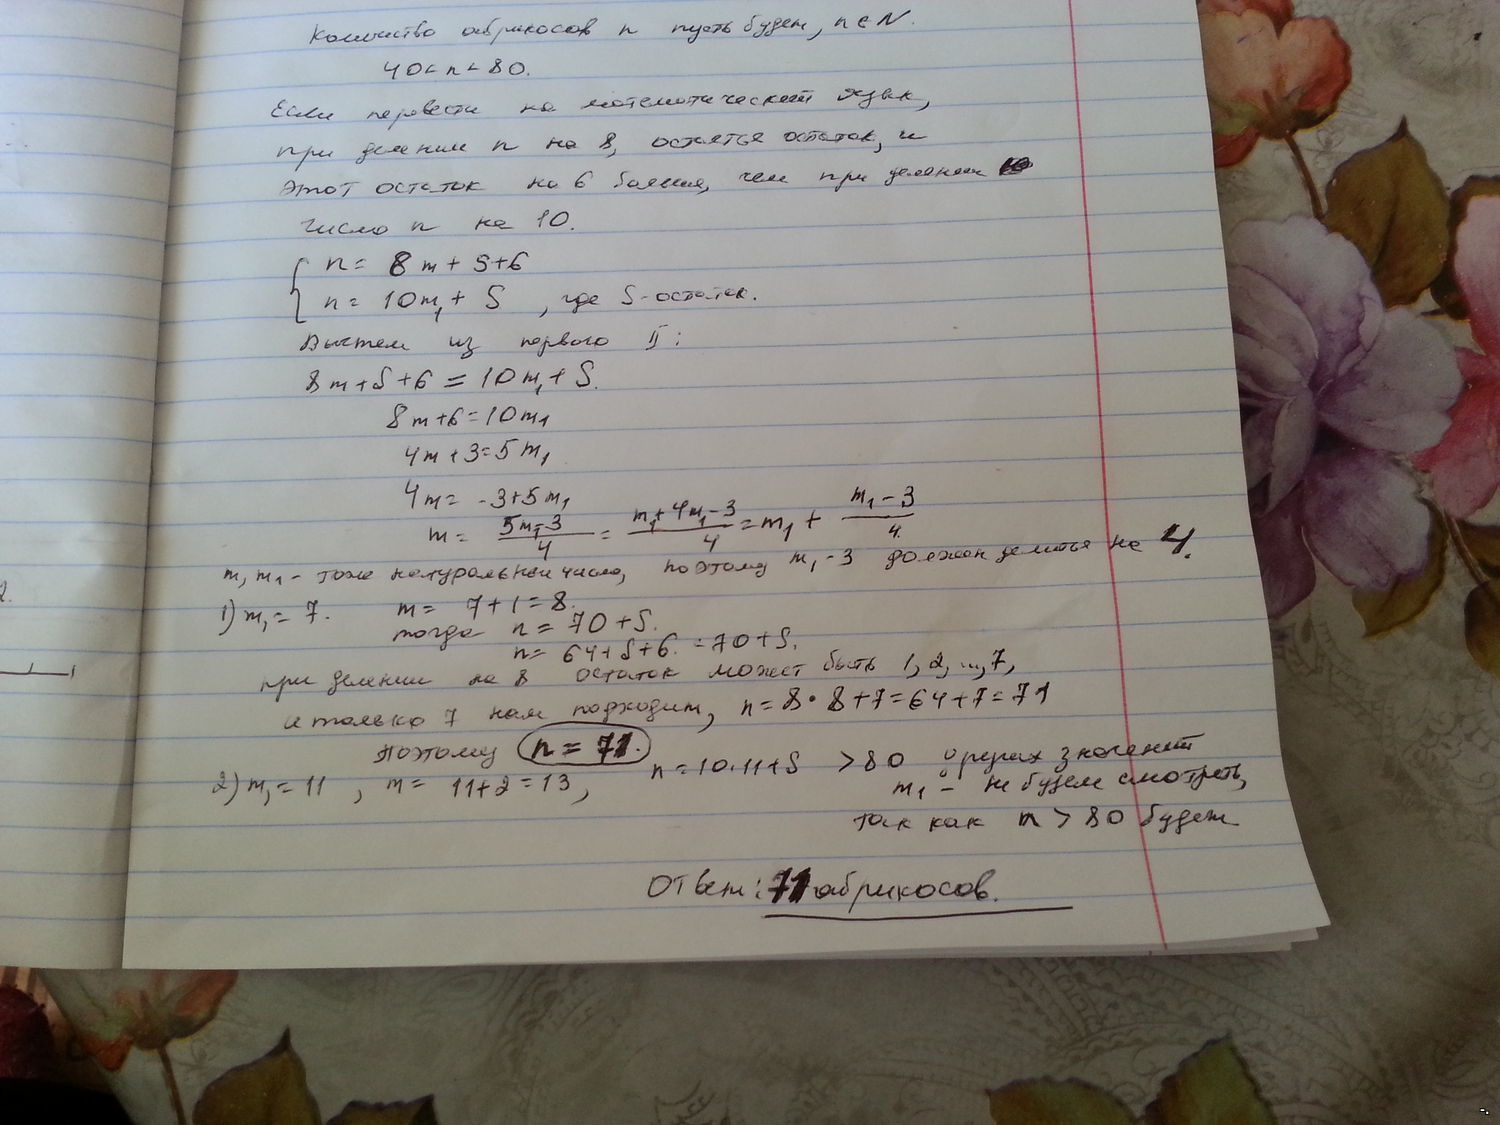 Количество абрикосов n пусть будет, n ∈ N.
40 < n < 80.
Если перевести на математический язык,
при делении n на 8, остается остаток, и
этот остаток на 6 больше, чем при делении
число n на 10.
{ n = 8m + S + 6
n = 10m₁ + S , где S - остаток.
Вычтем из первого II:
8m + S + 6 = 10m₁ + S.
8m + 6 = 10m₁
4m + 3 = 5m₁
4m = -3 + 5m₁
m = (5m₁ - 3)/4 = (m₁ + 4m₁ - 3)/4 = m₁ + (m₁ - 3)/4.
m, m₁ - тоже натуральные числа, поэтому m₁ - 3 должен делится на 4.
1) m₁ = 7. m = 7 + 1 = 8.
тогда n = 70 + S.
n = 64 + S + 6 = 70 + S.
при делении на 8 остаток может быть 1, 2, ..., 7,
и только 7 нам подходит, n = 8 · 8 + 7 = 64 + 7 = 71
Поэтому n = 71.
2) m₁ = 11, m = 11 + 2 = 13, n = 10·11 + S > 80 о других значений
m₁ - не будем смотреть,
так как n > 80 будет
Ответ: 71 абрикосов.
2.